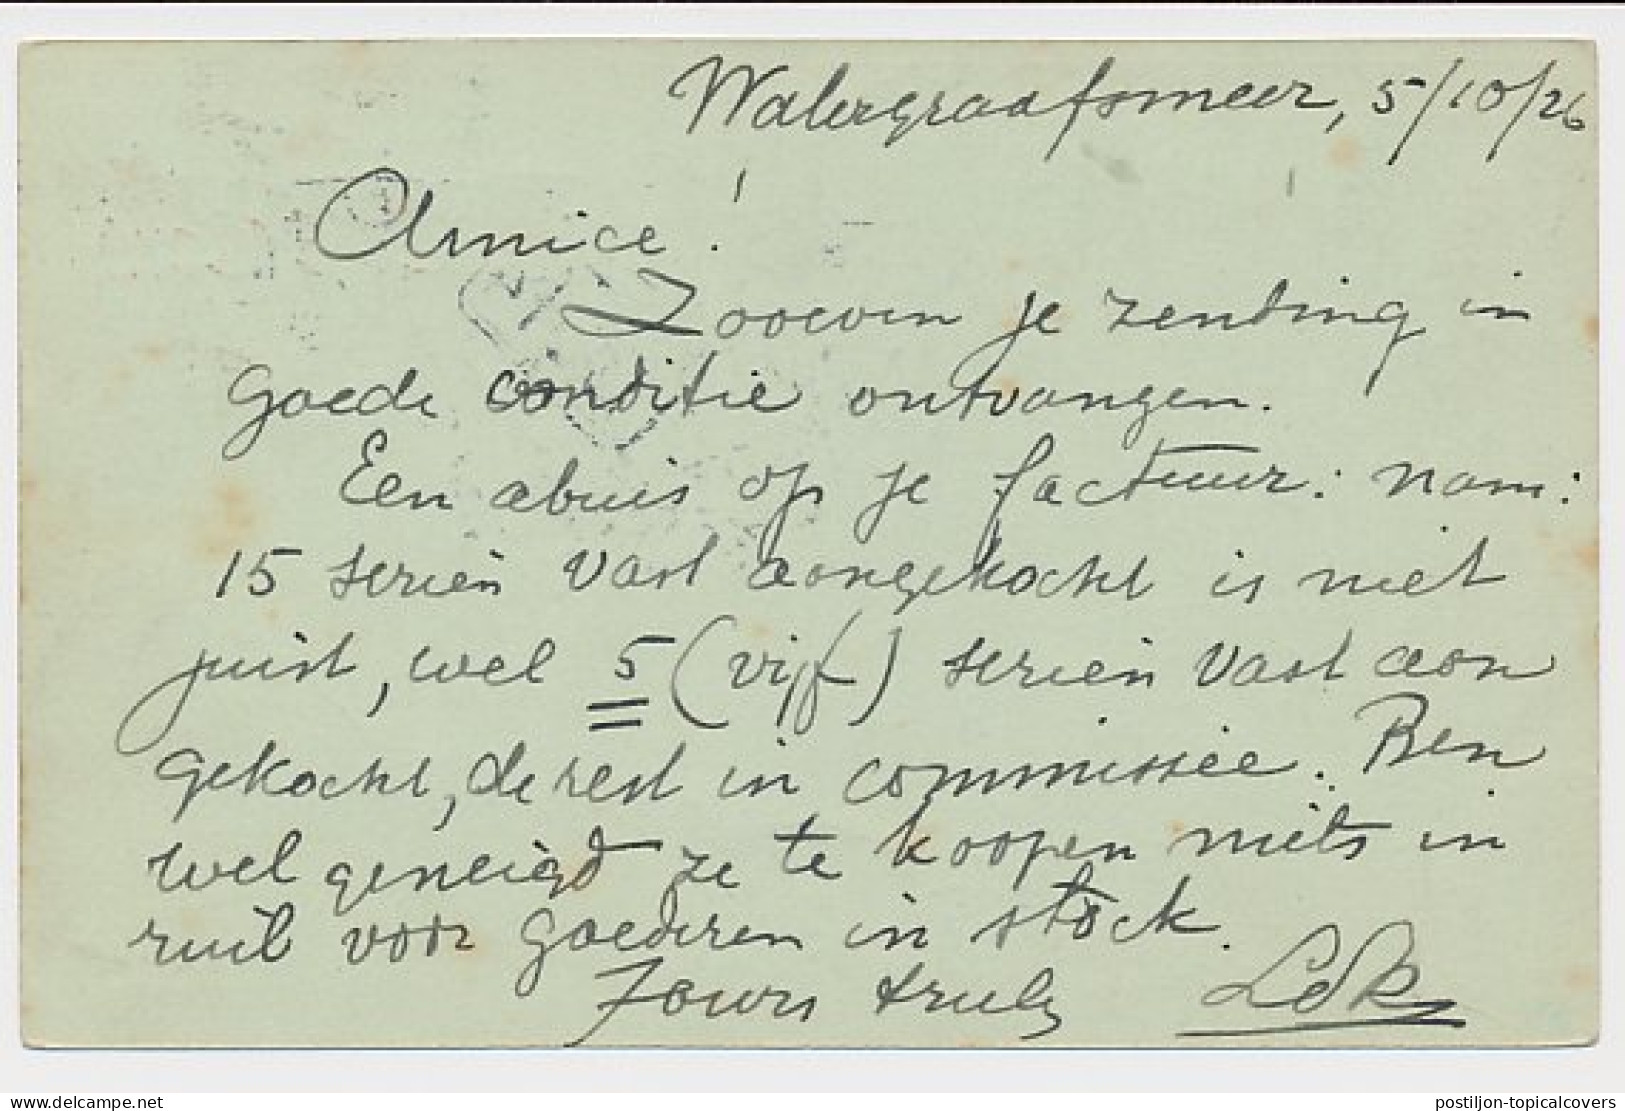 Watergraafsmeer, 5/10/26
Amice!
Zooeven je zending in
goede conditie ontvangen.
Een abuis op je factuur: nam:
15 serien vast aangekocht is niet
juist, wel 5 (vijf) serien vast aan
gekocht, de rest in commissie. Ben
wel geneigd ze te koopen niets in
ruil voor goederen in stock.
Yours truly LdK
delcampe.net
postiljon-topicalcovers